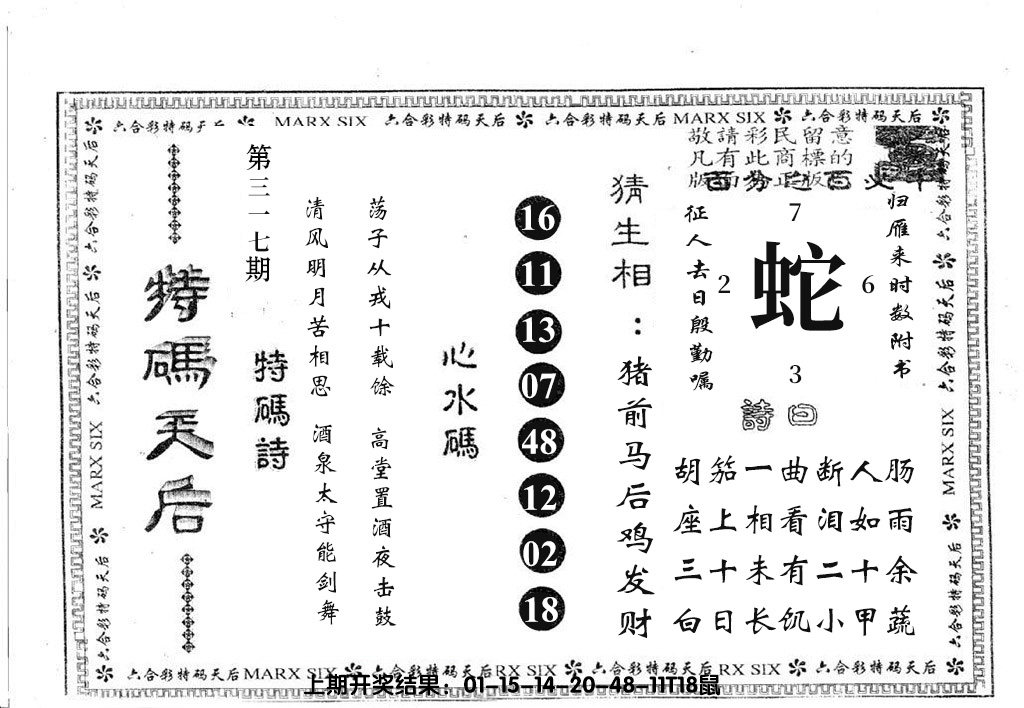 六合彩特码
MARX SIX
六合彩特码天后
六合彩特码天后
MARX SIX
六合彩特码天后
敬請彩民留意
凡有此商標的
版面分正版
猜生相：猪前马后鸡发财
征人去日殷勤嘱
归雁来时数附书
7
2
蛇
6
3
詩曰
胡笳一曲断人肠
座上相看泪如雨
三十未有二十余
白日长饥小甲蔬
16
11
13
07
48
12
02
18
心水碼
荡子从戎十载馀 高堂置酒夜击鼓
清风明月苦相思 酒泉太守能剑舞
特碼詩
第三一七期
特碼天后
六合彩特码天后
六合彩特码天后
MARX SIX
六合彩特码天后
六合彩特码天后
六合彩特码天后
六合彩特码天后
MARX SIX
六合彩特码天后
六合彩特码天后
MARX SIX
六合彩特码天后
RX SIX
六合彩特码天后
RX SIX
六合彩特码天后
上期开奖结果：01-15-14-20-48-11T18鼠